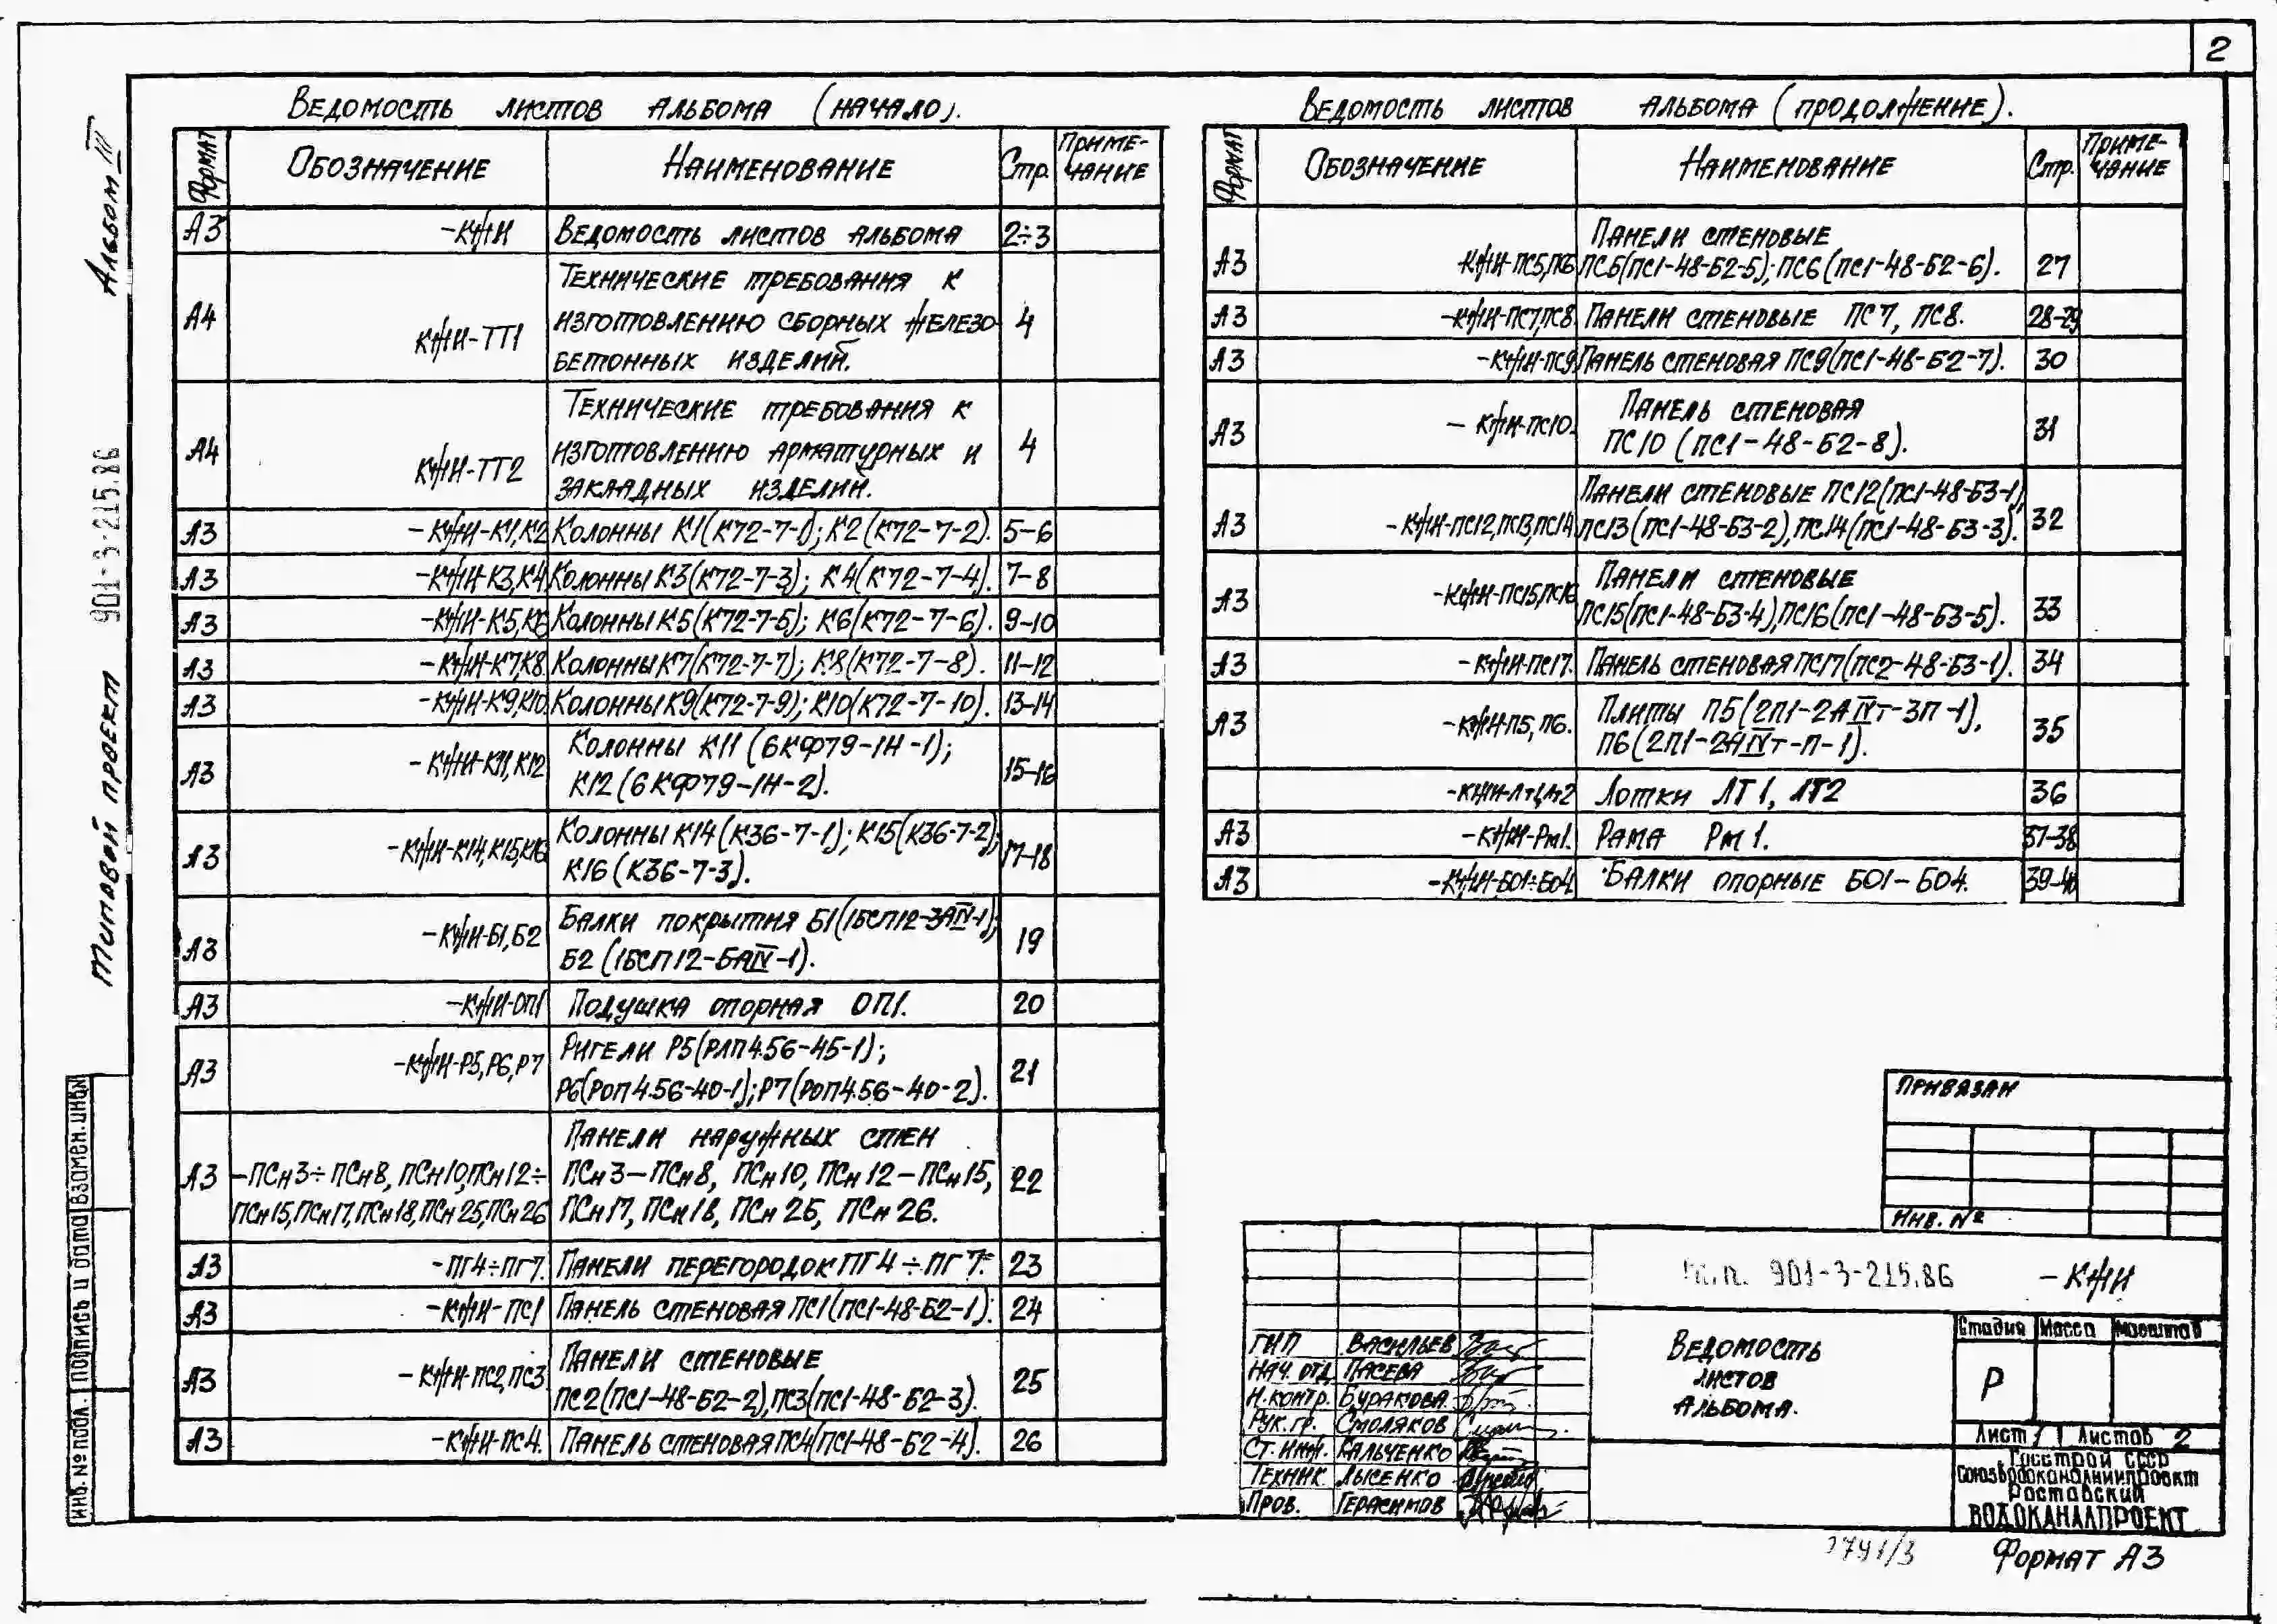 2
Альбом III
Типовой проект 901-3-215.86
Ведомость листов альбома (начало).
Формат Обозначение Наименование Стр. Приме-
чание
А3 -КЖИ Ведомость листов альбома 2÷3
Технические требования к
А4 КЖИ-ТТ1 изготовлению сборных железо- 4
бетонных изделий.
Технические требования к
А4 КЖИ-ТТ2 изготовлению арматурных и 4
закладных изделий.
А3 -КЖИ-К1,К2 Колонны К1(К72-7-1); К2(К72-7-2). 5-6
А3 -КЖИ-К3,К4 Колонны К3(К72-7-3); К4(К72-7-4). 7-8
А3 -КЖИ-К5,К6 Колонны К5(К72-7-5); К6(К72-7-6). 9-10
А3 -КЖИ-К7,К8 Колонны К7(К72-7-7); К8(К72-7-8). 11-12
А3 -КЖИ-К9,К10 Колонны К9(К72-7-9); К10(К72-7-10). 13-14
А3 -КЖИ-К11,К12 Колонны К11 (6КФ79-1Н-1); 15-16
К12 (6КФ79-1Н-2).
А3 -КЖИ-К14,К15,К16 Колонны К14(К36-7-1); К15(К36-7-2); 17-18
К16 (К36-7-3).
А3 -КЖИ-Б1,Б2 Балки покрытия Б1(1БСП12-3АIV-1); 19
Б2 (1БСП12-5АIV-1).
А3 -КЖИ-ОП1 Подушка опорная ОП1. 20
А3 -КЖИ-Р5,Р6,Р7 Ригели Р5(РЛП4.56-45-1); 21
Р6(РОП4.56-40-1); Р7(РОП4.56-40-2).
Панели наружных стен
А3 -ПСн3÷ПСн8, ПСн10,ПСн12÷ ПСн3-ПСн8, ПСн10, ПСн12-ПСн15, 22
ПСн15,ПСн17,ПСн18,ПСн25,ПСн26 ПСн17, ПСн18, ПСн25, ПСн26.
А3 -ПГ4÷ПГ7. Панели перегородок ПГ4÷ПГ7. 23
А3 -КЖИ-ПС1 Панель стеновая ПС1(ПС1-48-Б2-1). 24
А3 -КЖИ-ПС2,ПС3 Панели стеновые 25
ПС2(ПС1-48-Б2-2),ПС3(ПС1-48-Б2-3).
А3 -КЖИ-ПС4. Панель стеновая ПС4(ПС1-48-Б2-4). 26
Ведомость листов альбома (продолжение).
Формат Обозначение Наименование Стр. Приме-
чание
Панели стеновые
А3 -КЖИ-ПС5,ПС6 ПС5(ПС1-48-Б2-5); ПС6(ПС1-48-Б2-6). 27
А3 -КЖИ-ПС7,ПС8. Панели стеновые ПС7, ПС8. 28-29
А3 -КЖИ-ПС9 Панель стеновая ПС9(ПС1-48-Б2-7). 30
А3 -КЖИ-ПС10. Панель стеновая 31
ПС10 (ПС1-48-Б2-8).
Панели стеновые ПС12(ПС1-48-Б3-1),
А3 -КЖИ-ПС12,ПС13,ПС14 ПС13(ПС1-48-Б3-2),ПС14(ПС1-48-Б3-3). 32
А3 -КЖИ-ПС15,ПС16 Панели стеновые 33
ПС15(ПС1-48-Б3-4),ПС16(ПС1-48-Б3-5).
А3 -КЖИ-ПС17. Панель стеновая ПС17(ПС2-48-Б3-1). 34
А3 -КЖИ-П5, П6. Плиты П5(2П1-2АIVт-3П-1), 35
П6(2П1-2АIVт-П-1).
-КЖИ-Лт1,Лт2 Лотки ЛТ1, ЛТ2 36
А3 -КЖИ-Рм1. Рама Рм1. 37-38
А3 -КЖИ-Б01÷Б04. Балки опорные Б01-Б04. 39-40
Привязан
Инв. №
т.п. 901-3-215.86 -КЖИ
ГИП Васильев
Нач. отд. Пасева
Н.контр. Буракова
Рук. гр. Смоляков
Ст. инж. Гальченко
Техник Лысенко
Пров. Герасимов
Ведомость
листов
альбома.
Стадия Масса Масштаб
Р
Лист 1 Листов 2
Госстрой СССР
Союзводоканалниипроект
Ростовский
ВОДОКАНАЛПРОЕКТ
Формат А3
Инв. № подл. Подпись и дата Взамен. инв.№